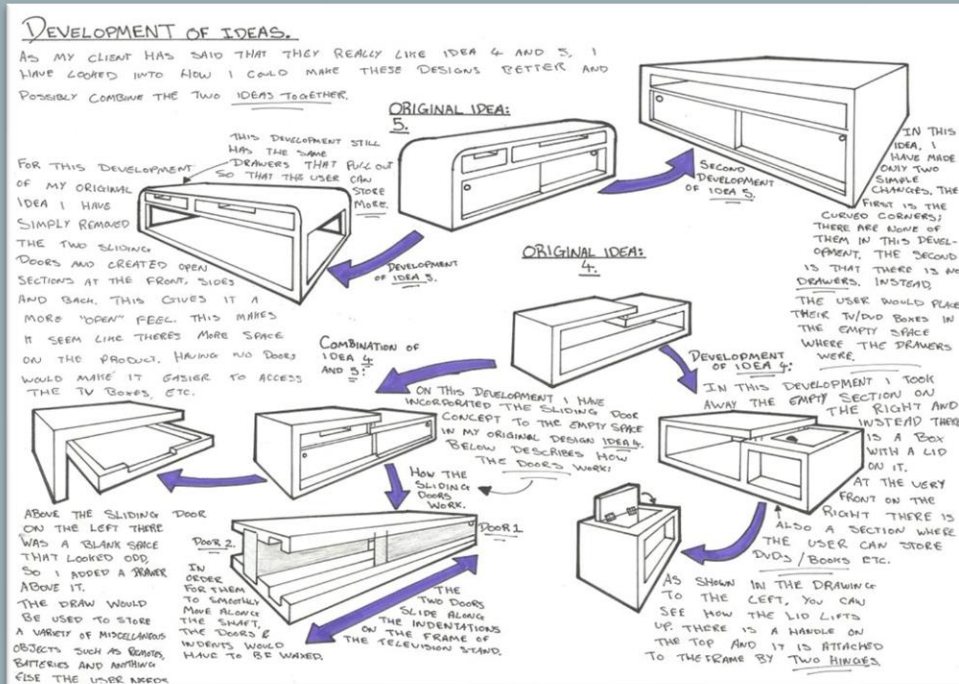 DEVELOPMENT OF IDEAS.
AS MY CLIENT HAS SAID THAT THEY REALLY LIKE IDEA 4 AND 5, I
HAVE LOOKED INTO HOW I COULD MAKE THESE DESIGNS BETTER AND
POSSIBLY COMBINE THE TWO IDEAS TOGETHER.
ORIGINAL IDEA:
5.
THIS DEVELOPMENT STILL
HAS THE SAME
DRAWERS THAT PULL OUT
SO THAT THE USER CAN
STORE
MORE.
FOR THIS DEVELOPMENT
OF MY ORIGINAL
IDEA I HAVE
SIMPLY REMOVED
THE TWO SLIDING
DOORS AND CREATED OPEN
SECTIONS AT THE FRONT, SIDES
AND BACK. THIS GIVES IT A
MORE "OPEN" FEEL. THIS MAKES
IT SEEM LIKE THERES MORE SPACE
ON THE PRODUCT. HAVING NO DOORS
WOULD MAKE IT EASIER TO ACCESS
THE TV BOXES, ETC.
DEVELOPMENT
OF IDEA 5.
SECOND
DEVELOPMENT
OF IDEA 5.
IN THIS
IDEA, I
HAVE MADE
ONLY TWO
SIMPLE
CHANGES, THE
FIRST IS THE
CURVED CORNERS;
THERE ARE NONE OF
THEM IN THIS DEVEL-
OPMENT. THE SECOND
IS THAT THERE IS NO
DRAWERS. INSTEAD,
THE USER WOULD PLACE
THEIR TV/DVD BOXES IN
THE EMPTY SPACE
WHERE THE DRAWERS
WERE.
ORIGINAL IDEA:
4.
COMBINATION OF
IDEA 4
AND 5:
ON THIS DEVELOPMENT I HAVE
INCORPORATED THE SLIDING DOOR
CONCEPT TO THE EMPTY SPACE
IN MY ORIGINAL DESIGN IDEA 4.
BELOW DESCRIBES HOW
THE DOORS WORK:
DEVELOPMENT
OF IDEA 4:
IN THIS DEVELOPMENT I TOOK
AWAY THE EMPTY SECTION ON
THE RIGHT AND
INSTEAD THERE
IS A BOX
WITH A LID
ON IT.
AT THE VERY
FRONT ON THE
RIGHT THERE IS
ALSO A SECTION WHERE
THE USER CAN STORE
DVDS/BOOKS ETC.
HOW THE
SLIDING
DOORS
WORK.
ABOVE THE SLIDING DOOR
ON THE LEFT THERE
WAS A BLANK SPACE
THAT LOOKED ODD,
SO I ADDED A DRAWER
ABOVE IT.
THE DRAW WOULD
BE USED TO STORE
A VARIETY OF MISCELLANEOUS
OBJECTS SUCH AS REMOTES,
BATTERIES AND ANYTHING
ELSE THE USER NEEDS
DOOR 2.
DOOR 1
IN
ORDER
FOR THEM
TO SMOOTHLY
MOVE ALONG
THE SHAFT,
THE DOORS &
INDENTS WOULD
HAVE TO BE WAXED.
THE
TWO DOORS
SLIDE ALONG
THE INDENTATIONS
ON THE FRAME OF
THE TELEVISION STAND.
AS SHOWN IN THE DRAWING
TO THE LEFT, YOU CAN
SEE HOW THE LID LIFTS
UP. THERE IS A HANDLE ON
THE TOP AND IT IS ATTACHED
TO THE FRAME BY TWO HINGES.